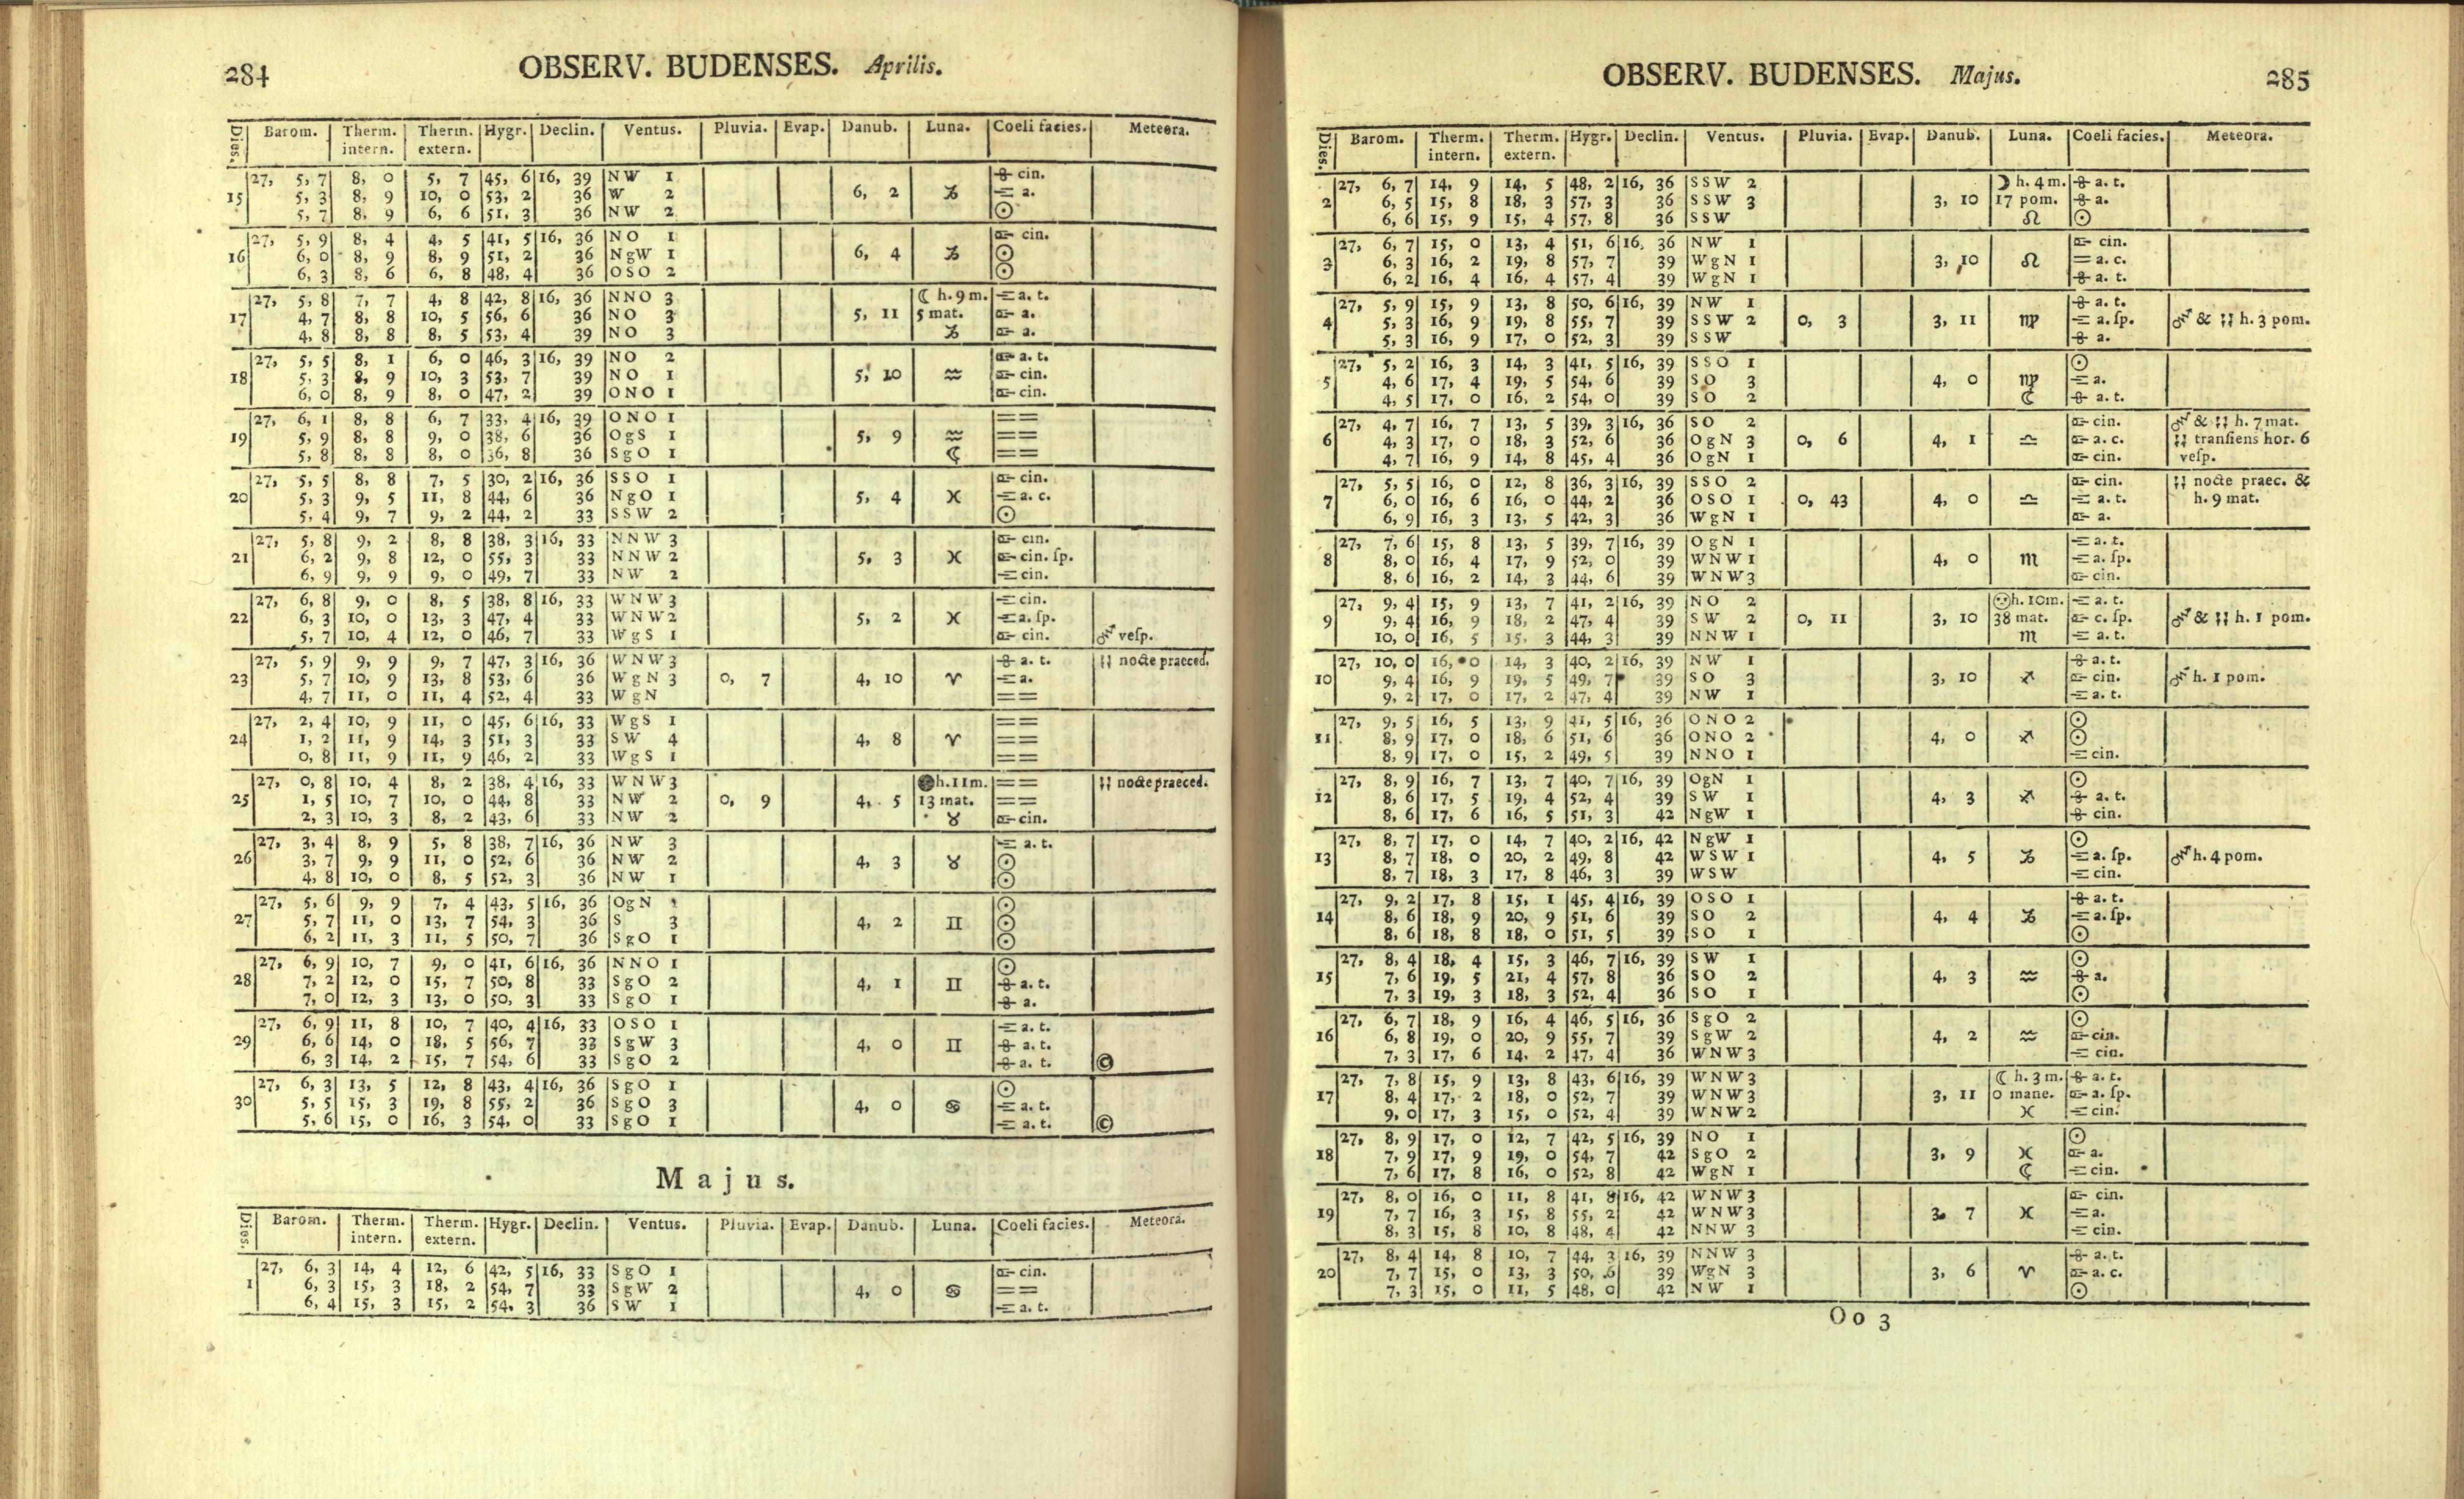 284 OBSERV. BUDENSES. Aprilis.
Dies. Barom. Therm. intern. Therm. extern. Hygr. Declin. Ventus. Pluvia. Evap. Danub. Luna. Coeli facies. Meteora.
27, 5, 7 8, 0 5, 7 45, 6 16, 39 NW 1 cin.
15 5, 3 8, 9 10, 0 53, 2 36 W 2 6, 2 ♑ a.
5, 7 8, 9 6, 6 51, 3 36 NW 2 ☉
27, 5, 9 8, 4 4, 5 41, 5 16, 36 NO 1 cin.
16 6, 0 8, 9 8, 9 51, 2 36 NgW 1 6, 4 ♑ ☉
6, 3 8, 6 6, 8 48, 4 36 OSO 2 ☉
27, 5, 8 7, 7 4, 8 42, 8 16, 36 NNO 3 ☾ h. 9 m. a. t.
17 4, 7 8, 8 10, 5 56, 6 36 NO 3 5, 11 5 mat. a.
4, 8 8, 8 8, 5 53, 4 39 NO 3 ♑ a.
27, 5, 5 8, 1 6, 0 46, 3 16, 39 NO 2 a. t.
18 5, 3 8, 9 10, 3 53, 7 39 NO 1 5, 10 ♒ cin.
6, 0 8, 9 8, 0 47, 2 39 ONO 1 cin.
27, 6, 1 8, 8 6, 7 33, 4 16, 39 ONO 1 ==
19 5, 9 8, 8 9, 0 38, 6 36 OgS 1 5, 9 ♒ ==
5, 8 8, 8 8, 0 36, 8 36 SgO 1 ☾ ==
27, 5, 5 8, 8 7, 5 30, 2 16, 36 SSO 1 cin.
20 5, 3 9, 5 11, 8 44, 6 36 NgO 1 5, 4 ♓ a. c.
5, 4 9, 7 9, 2 44, 2 33 SSW 2 ☉
27, 5, 8 9, 2 8, 8 38, 3 16, 33 NNW 3 cin.
21 6, 2 9, 8 12, 0 55, 3 33 NNW 2 5, 3 ♓ cin. ſp.
6, 9 9, 9 9, 0 49, 7 33 NW 2 cin.
27, 6, 8 9, 0 8, 5 38, 8 16, 33 WNW 3 cin.
22 6, 3 10, 0 13, 3 47, 4 33 WNW 2 5, 2 ♓ a. ſp.
5, 7 10, 4 12, 0 46, 7 33 WgS 1 cin. veſp.
27, 5, 9 9, 9 9, 7 47, 3 16, 36 WNW 3 a. t. nocte praeced.
23 5, 7 10, 9 13, 8 53, 6 36 WgN 3 0, 7 4, 10 ♈ a.
4, 7 11, 0 11, 4 52, 4 33 WgN ==
27, 2, 4 10, 9 11, 0 45, 6 16, 33 WgS 1 ==
24 1, 2 11, 9 14, 3 51, 3 33 SW 4 4, 8 ♈ ==
0, 8 11, 9 11, 9 46, 2 33 WgS 1 ==
27, 0, 8 10, 4 8, 2 38, 4 16, 33 WNW 3 ● h. 11 m. == nocte praeced.
25 1, 5 10, 7 10, 0 44, 8 33 NW 2 0, 9 4, 5 13 mat. ==
2, 3 10, 3 8, 2 43, 6 33 NW 2 ♉ cin.
27, 3, 4 8, 9 5, 8 38, 7 16, 36 NW 3 a. t.
26 3, 7 9, 9 11, 0 52, 6 36 NW 2 4, 3 ♉ ☉
4, 8 10, 0 8, 5 52, 3 36 NW 1 ☉
27, 5, 6 9, 9 7, 4 43, 5 16, 36 OgN ☉
27 5, 7 11, 0 13, 7 54, 3 36 S 3 4, 2 ♊ ☉
6, 2 11, 3 11, 5 50, 7 36 SgO 1 ☉
27, 6, 9 10, 7 9, 0 41, 6 16, 36 NNO 1 ☉
28 7, 2 12, 0 15, 7 50, 8 33 SgO 2 4, 1 ♊ a. t.
7, 0 12, 3 13, 0 50, 3 33 SgO 1 a.
27, 6, 9 11, 8 10, 7 40, 4 16, 33 OSO 1 a. t.
29 6, 6 14, 0 18, 5 56, 7 33 SgW 3 4, 0 ♊ a. t.
6, 3 14, 2 15, 7 54, 6 33 SgO 2 a. t. ©
27, 6, 3 13, 5 12, 8 43, 4 16, 36 SgO 1 ☉
30 5, 5 15, 3 19, 8 55, 2 36 SgO 3 4, 0 ♋ a. t.
5, 6 15, 0 16, 3 54, 0 33 SgO 1 a. t. ©
Majus.
Dies. Barom. Therm. intern. Therm. extern. Hygr. Declin. Ventus. Pluvia. Evap. Danub. Luna. Coeli facies. Meteora.
27, 6, 3 14, 4 12, 6 42, 5 16, 33 SgO 1 cin.
1 6, 3 15, 3 18, 2 54, 7 33 SgW 2 4, 0 ♋ ==
6, 4 15, 3 15, 2 54, 3 36 SW 1 a. t.
OBSERV. BUDENSES. Majus. 285
Dies. Barom. Therm. intern. Therm. extern. Hygr. Declin. Ventus. Pluvia. Evap. Danub. Luna. Coeli facies. Meteora.
27, 6, 7 14, 9 14, 5 48, 2 16, 36 SSW 2 ☽ h. 4 m. a. t.
2 6, 5 15, 8 18, 3 57, 3 36 SSW 3 3, 10 17 pom. a.
6, 6 15, 9 15, 4 57, 8 36 SSW ♌ ☉
27, 6, 7 15, 0 13, 4 51, 6 16, 36 NW 1 cin.
3 6, 3 16, 2 19, 8 57, 7 39 WgN 1 3, 10 ♌ = a. c.
6, 2 16, 4 16, 4 57, 4 39 WgN 1 a. t.
27, 5, 9 15, 9 13, 8 50, 6 16, 39 NW 1 a. t.
4 5, 3 16, 9 19, 8 55, 7 39 SSW 2 0, 3 3, 11 ♍ a. ſp. & h. 3 pom.
5, 3 16, 9 17, 0 52, 3 39 SSW a.
27, 5, 2 16, 3 14, 3 41, 5 16, 39 SSO 1 ☉
5 4, 6 17, 4 19, 5 54, 6 39 SO 3 4, 0 ♍ a.
4, 5 17, 0 16, 2 54, 0 39 SO 2 ☾ a. t.
27, 4, 7 16, 7 13, 5 39, 3 16, 36 SO 2 cin. & h. 7 mat.
6 4, 3 17, 0 18, 3 52, 6 36 OgN 3 0, 6 4, 1 ♎ a. c. tranſiens hor. 6
4, 7 16, 9 14, 8 45, 4 36 OgN 1 cin. veſp.
27, 5, 5 16, 0 12, 8 36, 3 16, 39 SSO 2 cin. nocte praec. &
7 6, 0 16, 6 16, 0 44, 2 36 OSO 1 0, 43 4, 0 ♎ a. t. h. 9 mat.
6, 9 16, 3 13, 5 42, 3 36 WgN 1 a.
27, 7, 6 15, 8 13, 5 39, 7 16, 39 OgN 1 a. t.
8 8, 0 16, 4 17, 9 52, 0 39 WNW 1 4, 0 ♏ a. ſp.
8, 6 16, 2 14, 3 44, 6 39 WNW 3 cin.
27, 9, 4 15, 9 13, 7 41, 2 16, 39 NO 2 h. 10m. a. t.
9 9, 4 16, 9 18, 2 47, 4 39 SW 2 0, 11 3, 10 38 mat. c. ſp. & h. 1 pom.
10, 0 16, 5 15, 3 44, 3 39 NNW 1 ♏ a. t.
27, 10, 0 16, 0 14, 3 40, 2 16, 39 NW 1 a. t.
10 9, 4 16, 9 19, 5 49, 7 39 SO 3 3, 10 ♐ cin. h. 1 pom.
9, 2 17, 0 17, 2 47, 4 39 NW 1 a. t.
27, 9, 5 16, 5 13, 9 41, 5 16, 36 ONO 2 ☉
11 8, 9 17, 0 18, 6 51, 6 36 ONO 2 4, 0 ♐ ☉
8, 9 17, 0 15, 2 49, 5 39 NNO 1 cin.
27, 8, 9 16, 7 13, 7 40, 7 16, 39 OgN 1 ☉
12 8, 6 17, 5 19, 4 52, 4 39 SW 1 4, 3 ♐ a. t.
8, 6 17, 6 16, 5 51, 3 42 NgW 1 cin.
27, 8, 7 17, 0 14, 7 40, 2 16, 42 NgW 1 ☉
13 8, 7 18, 0 20, 2 49, 8 42 WSW 1 4, 5 ♑ a. ſp. h. 4 pom.
8, 7 18, 3 17, 8 46, 3 39 WSW cin.
27, 9, 2 17, 8 15, 1 45, 4 16, 39 OSO 1 a. t.
14 8, 6 18, 9 20, 9 51, 6 39 SO 2 4, 4 ♑ a. ſp.
8, 6 18, 8 18, 0 51, 5 39 SO 1 ☉
27, 8, 4 18, 4 15, 3 46, 7 16, 39 SW 1 ☉
15 7, 6 19, 5 21, 4 57, 8 36 SO 2 4, 3 ♒ a.
7, 3 19, 3 18, 3 52, 4 36 SO 1 ☉
27, 6, 7 18, 9 16, 4 46, 5 16, 36 SgO 2 ☉
16 6, 8 19, 0 20, 9 55, 7 39 SgW 2 4, 2 ♒ cin.
7, 3 17, 6 14, 2 47, 4 36 WNW 3 cin.
27, 7, 8 15, 9 13, 8 43, 6 16, 39 WNW 3 ☾ h. 3 m. a. t.
17 8, 4 17, 2 18, 0 52, 7 39 WNW 3 3, 11 0 mane. a. ſp.
9, 0 17, 3 15, 0 52, 4 39 WNW 2 ♓ cin.
27, 8, 9 17, 0 12, 7 42, 5 16, 39 NO 1 ☉
18 7, 9 17, 9 19, 0 54, 7 42 SgO 2 3, 9 ♓ a.
7, 6 17, 8 16, 0 52, 8 42 WgN 1 ☾ cin.
27, 8, 0 16, 0 11, 8 41, 8 16, 42 WNW 3 cin.
19 7, 7 16, 3 15, 8 55, 2 42 WNW 3 3, 7 ♓ a.
8, 3 15, 8 10, 8 48, 4 42 NNW 3 cin.
27, 8, 4 14, 8 10, 7 44, 3 16, 39 NNW 3 a. t.
20 7, 7 15, 0 13, 3 50, 6 39 WgN 3 3, 6 ♈ a. c.
7, 3 15, 0 11, 5 48, 0 42 NW 1 ☉
Oo 3